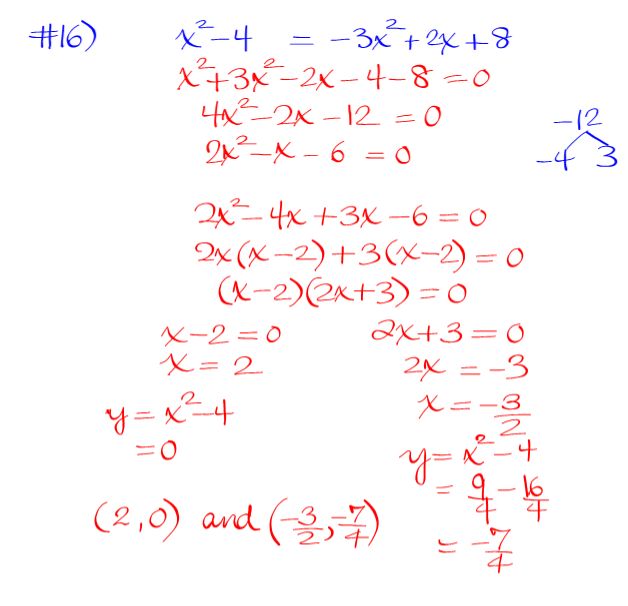 #16) x²-4 = -3x²+2x+8
x²+3x²-2x-4-8=0
4x²-2x-12 = 0
-12
2x²-x-6 = 0
-4 3
2x²-4x+3x-6=0
2x(x-2)+3(x-2)=0
(x-2)(2x+3)=0
x-2=0 2x+3=0
x=2 2x=-3
y=x²-4 x=-3/2
=0 y=x²-4
=9/4-16/4
(2,0) and (-3/2,-7/4)
=-7/4